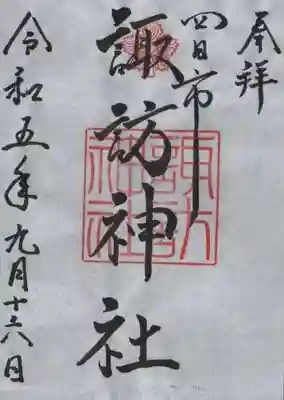 奉拝
四日市
諏訪神社
令和五年九月十六日